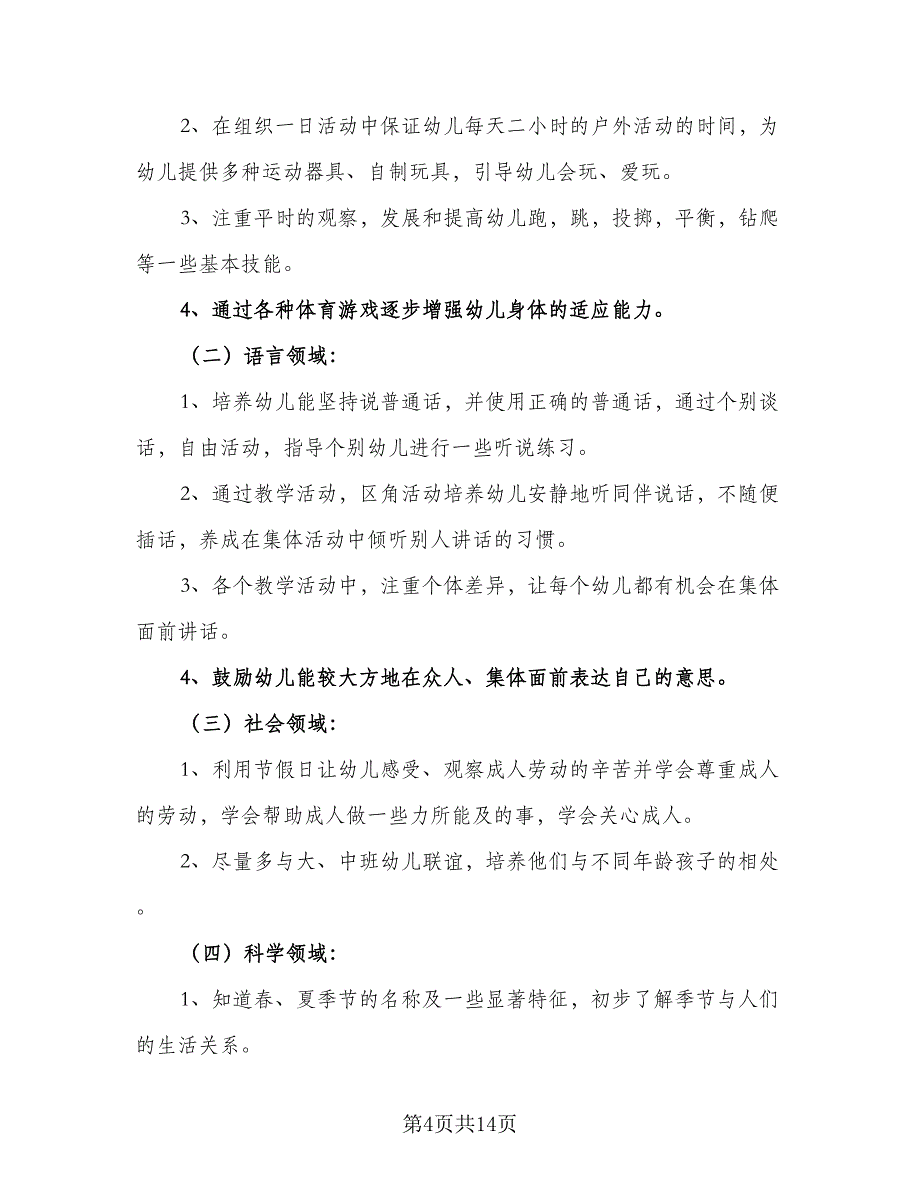 2、在组织一日活动中保证幼儿每天二小时的户外活动的时间，为
幼儿提供多种运动器具、自制玩具，引导幼儿会玩、爱玩。
3、注重平时的观察，发展和提高幼儿跑，跳，投掷，平衡，钻爬
等一些基本技能。
4、通过各种体育游戏逐步增强幼儿身体的适应能力。
（二）语言领域：
1、培养幼儿能坚持说普通话，并使用正确的普通话，通过个别谈
话，自由活动，指导个别幼儿进行一些听说练习。
2、通过教学活动，区角活动培养幼儿安静地听同伴说话，不随便
插话，养成在集体活动中倾听别人讲话的习惯。
3、各个教学活动中，注重个体差异，让每个幼儿都有机会在集体
面前讲话。
4、鼓励幼儿能较大方地在众人、集体面前表达自己的意思。
（三）社会领域：
1、利用节假日让幼儿感受、观察成人劳动的辛苦并学会尊重成人
的劳动，学会帮助成人做一些力所能及的事，学会关心成人。
2、尽量多与大、中班幼儿联谊，培养他们与不同年龄孩子的相处
。
（四）科学领域：
1、知道春、夏季节的名称及一些显著特征，初步了解季节与人们
的生活关系。
第4页共14页